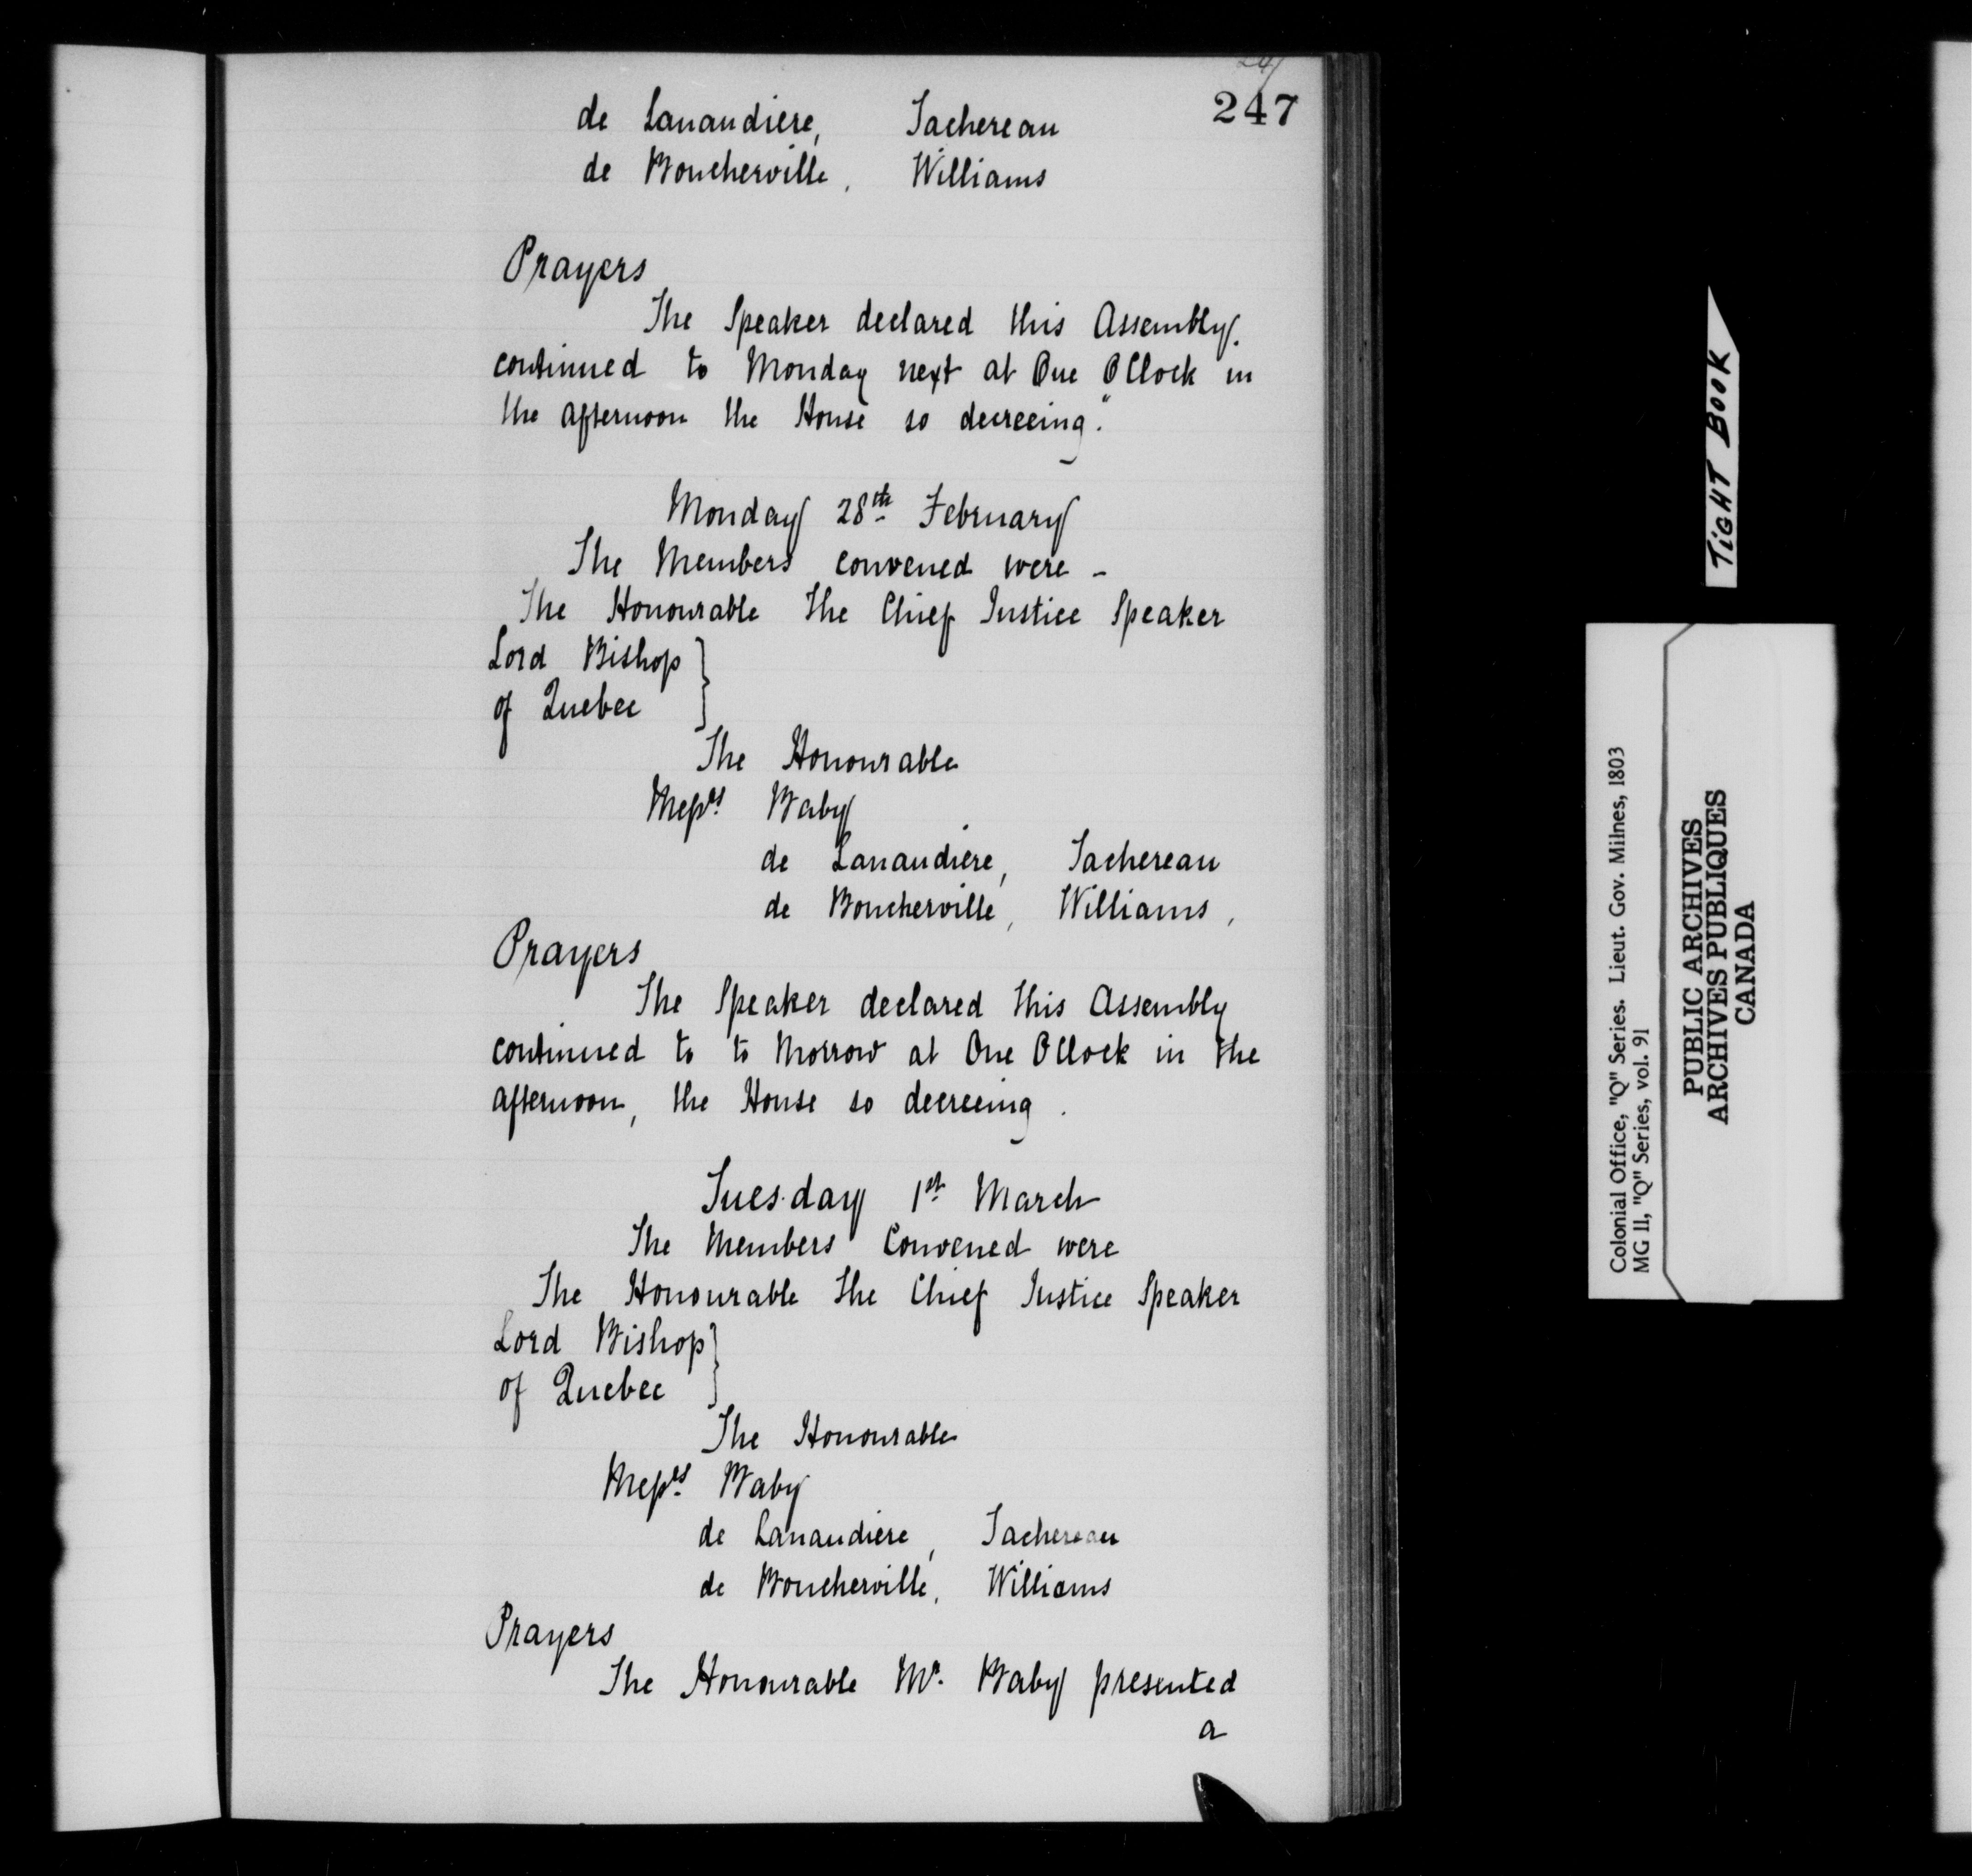 247
247
de Lanaudiere, Tachereau
de Boucherville, Williams
Prayers
The Speaker declared this Assembly
continued to Monday next at One OClock in
the afternoon the House so decreeing."
Monday 28th February
The Members convened were -
The Honourable The Chief Justice Speaker
Lord Bishop }
of Quebec }
The Honourable
Messrs Baby
de Lanaudiere, Tachereau
de Boucherville, Williams,
Prayers
The Speaker declared this Assembly
continued to to Morrow at One OClock in the
afternoon, the House so decreeing.
Tuesday 1st March
The Members Convened were
The Honourable The Chief Justice Speaker
Lord Bishop }
of Quebec }
The Honourable
Messrs Baby
de Lanaudiere, Tachereau
de Boucherville, Williams
Prayers
The Honourable Mr. Baby presented
a
TIGHT BOOK
Colonial Office, "Q" Series. Lieut. Gov. Milnes, 1803
MG 11, "Q" Series, vol. 91
PUBLIC ARCHIVES
ARCHIVES PUBLIQUES
CANADA